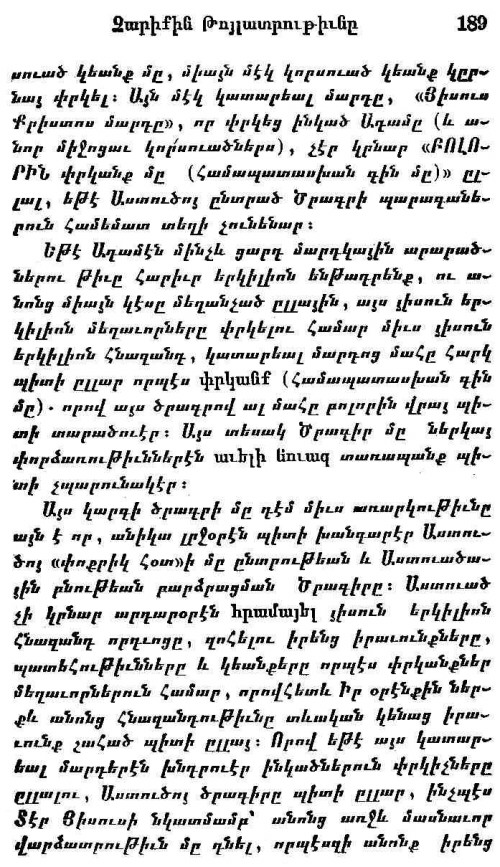 Չարիքին Թոյլատրութիւնը 189
սուած կեանք մը, միայն մէկ կորսուած կեանք կըր-
նայ փրկել։ Այն մէկ կատարեալ մարդը, «Յիսուս
Քրիստոս մարդը», որ փրկեց ինկած Ադամը (և ա-
նոր միջոցաւ կորսուածներս), չէր կրնար «ԲՈԼՈ-
ՐԻՆ փրկանք մը (Համապատասխան գին մը)» ըլ-
լալ, եթէ Աստուծոյ ընտրած Ծրագրի պարագանե-
րուն համեմատ տեղի չունենար։
Եթէ Ադամէն մինչև ցարդ մարդկային արարած-
ներու թիւը հարիւր երկիլիոն ենթադրենք, ու ա-
նոնց միայն կէսը մեղանչած ըլլային, այս յիսուն եր-
կիլիոն մեղաւորները փրկելու համար միւս յիսուն
երկիլիոն հնազանդ, կատարեալ մարդոց մահը հարկ
պիտի ըլլար որպէս փրկանք (համապատասխան գին
մը)․ որով այս ծրագրով ալ մահը բոլորին վրայ պի-
տի տարածուէր։ Այս տեսակ Ծրագիր մը ներկայ
փորձառութիւններէն աւելի նուազ տառապանք պի-
տի չպարունակէր։
Այս կարգի ծրագրի մը դէմ միւս առարկութիւնը
այն է որ, անիկա լրջօրէն պիտի խանգարէր Աստու-
ծոյ «փոքրիկ Հօտ»ի մը ընտրութեան և Աստուածա-
յին բնութեան բարձրացման Ծրագիրը։ Աստուած
չի կրնար արդարօրէն հրամայել յիսուն երկիլիոն
հնազանդ որդւոցը, զոհելու իրենց իրաւունքները,
պատեհութիւնները և կեանքերը որպէս փրկանքներ
մեղաւորներուն համար, որովհետև Իր օրէնքին ներ-
քև անոնց հնազանդութիւնը տևական կենաց իրա-
ւունք շահած պիտի ըլլայ։ Որով եթէ այս կատար-
եալ մարդերէն խնդրուէր ինկածներուն փրկիչները
ըլլալու, Աստուծոյ ծրագիրը պիտի ըլլար, ինչպէս
Տէր Յիսուսի նկատմամբ՝ անոնց առջև մասնաւոր
վարձատրութիւն մը դնել, որպէսզի անոնք իրենց